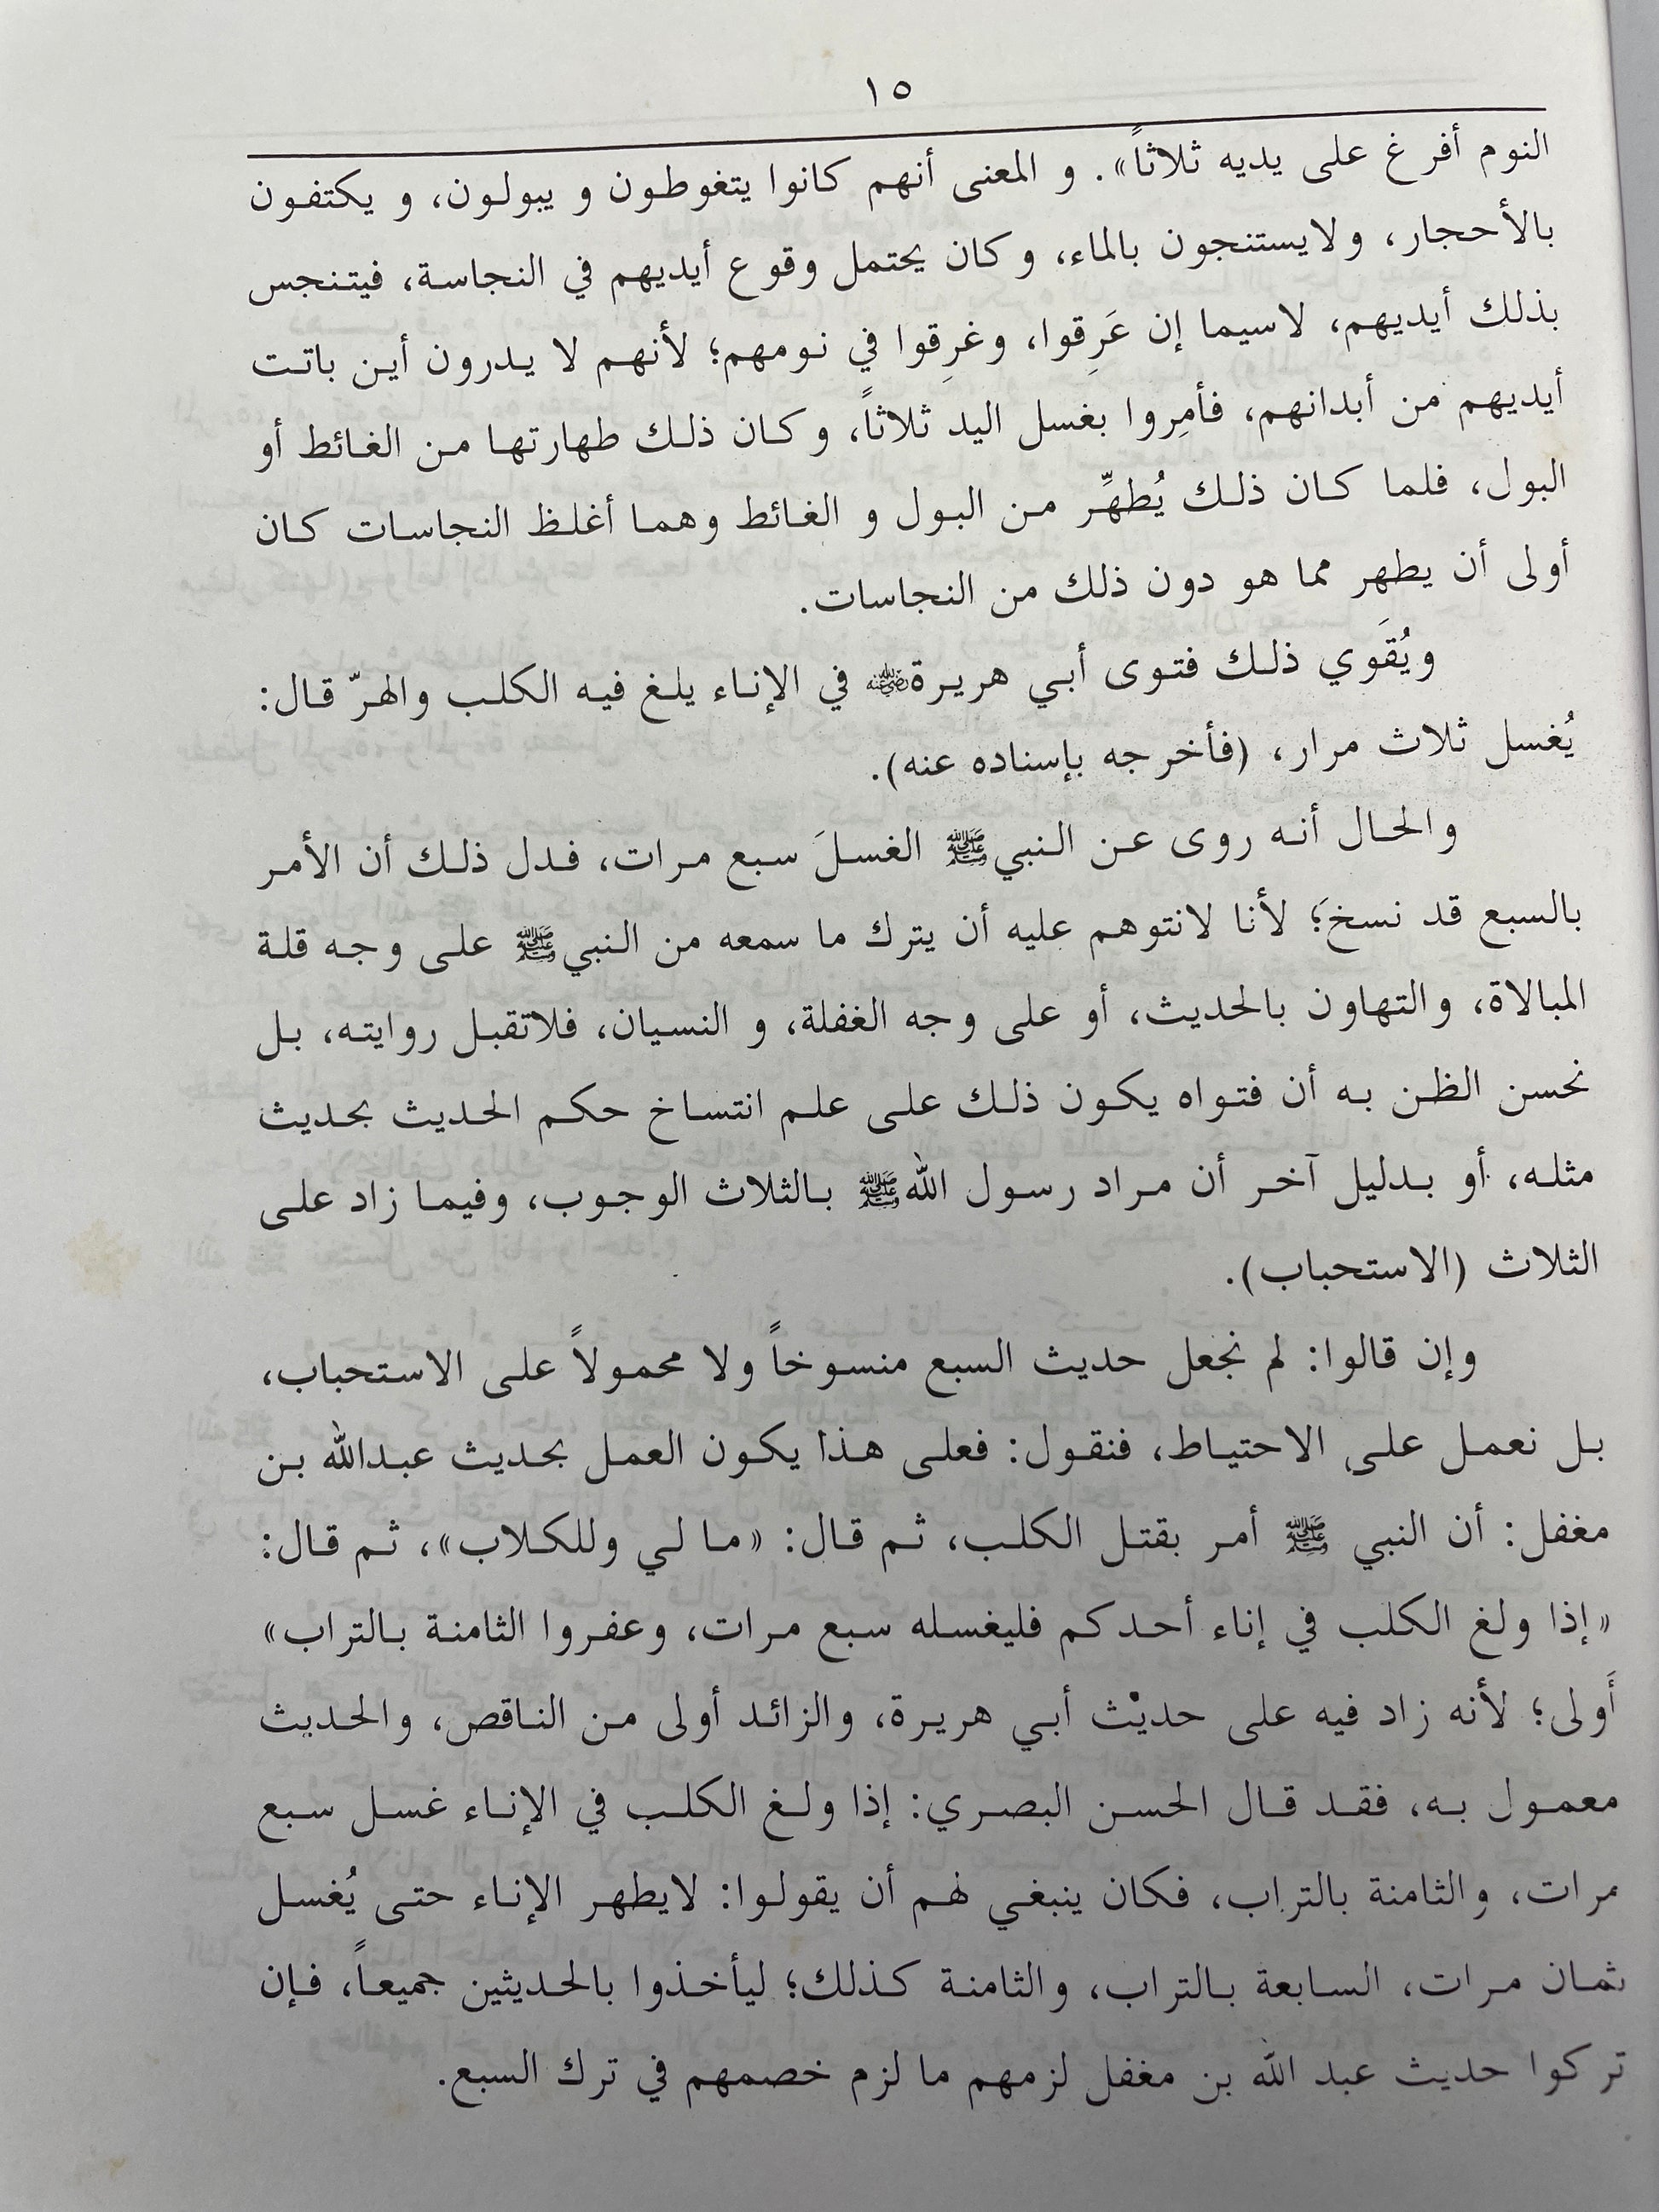 ١٥
النوم أفرغ على يديه ثلاثاً». و المعنى أنهم كانوا يتغوطون و يبولون، و يكتفون
بالأحجار، ولايستنجون بالماء، وكان يحتمل وقوع أيديهم في النجاسة، فيتنجس
بذلك أيديهم، لاسيما إن عَرِقوا، وغرِقوا في نومهم؛ لأنهم لا يدرون أين باتت
أيديهم من أبدانهم، فأمِروا بغسل اليد ثلاثاً، وكان ذلك طهارتها من الغائط أو
البول، فلما كان ذلك يُطهِّر من البول و الغائط وهما أغلظ النجاسات كان
أولى أن يطهر مما هو دون ذلك من النجاسات.
ويُقَوي ذلك فتوى أبي هريرةرضي الله عنه في الإناء يلغ فيه الكلب والهرّ قال:
يُغسل ثلاث مرار، (فأخرجه بإسناده عنه).
والحال أنه روى عن النبيﷺ الغسلَ سبع مرات، فدل ذلك أن الأمر
بالسبع قد نسخَ؛ لأنا لانتوهم عليه أن يترك ما سمعه من النبيﷺ على وجه قلة
المبالاة، والتهاون بالحديث، أو على وجه الغفلة، و النسيان، فلاتقبل روايته، بل
نحسن الظن به أن فتواه يكون ذلك على علم انتساخ حكم الحديث بحديث
مثله، أو بدليل آخر أن مراد رسول اللهﷺ بالثلاث الوجوب، وفيما زاد على
الثلاث (الاستحباب).
وإن قالوا: لم نجعل حديث السبع منسوخاً ولا محمولاً على الاستحباب،
بل نعمل على الاحتياط، فنقول: فعلى هذا يكون العمل بحديث عبدالله بن
مغفل: أن النبي ﷺ أمر بقتل الكلب، ثم قال: «ما لي وللكلاب»، ثم قال:
«إذا ولغ الكلب في إناء أحدكم فليغسله سبع مرات، وعفروا الثامنة بالتراب»
أَولى؛ لأنه زاد فيه على حديْث أبي هريرة، والزائد أولى من الناقص، والحديث
معمول به، فقد قال الحسن البصري: إذا ولغ الكلب في الإناء غسل سبع
مرات، والثامنة بالتراب، فكان ينبغي لهم أن يقولوا: لايطهر الإناء حتى يُغسل
ثمان مرات، السابعة بالتراب، والثامنة كذلك؛ ليأخذوا بالحديثين جميعاً، فإن
تركوا حديث عبد الله بن مغفل لزمهم ما لزم خصمهم في ترك السبع.